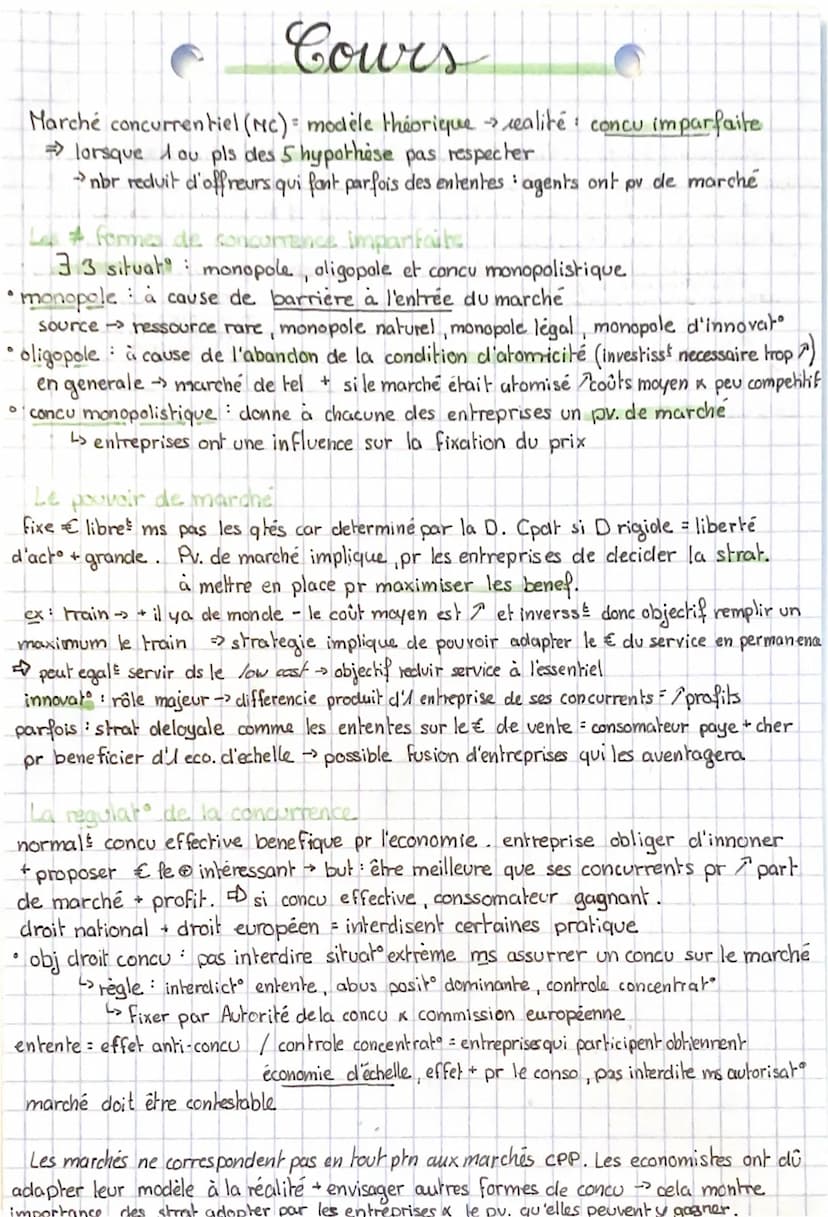 Cours
Marché concurrentiel (MC) = modèle théorique → realité : concu imparfaite
⇒ lorsque 1 ou pls des 5 hypothèse pas respecter
→ nbr reduit d'offreurs qui font parfois des ententes : agents ont pv de marché
Les ≠ formes de concurrence imparfaite
∃ 3 situat° : monopole, oligopole et concu monopolistique
• monopole : à cause de barrière à l'entrée du marché
source → ressource rare, monopole naturel, monopole légal, monopole d'innovat°
• oligopole : à cause de l'abandon de la condition d'atomicité (investisst necessaire trop ↗)
en generale → marché de tel + si le marché était atomisé ↗ coûts moyen & peu competitif
• concu monopolistique : donne à chacune des entreprises un pv. de marché
↳ entreprises ont une influence sur la fixation du prix
Le pouvoir de marché
fixe € libret ms pas les qtés car determiné par la D. Cpdt si D rigide = liberté
d'act° + grande. Pv. de marché implique, pr les entreprises de decider la strat.
à mettre en place pr maximiser les benef.
ex : train → + il ya de monde - le coût moyen est ↗ et inversst donc objectif remplir un
maximum le train ⇒ strategie implique de pouvoir adapter le € du service en permanena
⇨ peut egalt servir ds le low cost → objectif reduir service à l'essentiel
innovat° : rôle majeur → differencie produit d'1 entreprise de ses concurrents = ↗ profits
parfois : strat deloyale comme les ententes sur le € de vente = consomateur paye + cher
pr beneficier d'1 eco. d'echelle → possible fusion d'entreprises qui les aventagera
La regulat° de la concurrence
normalt concu effective benefique pr l'economie. entreprise obliger d'innoner
+ proposer € le ⊕ intéressant → but : être meilleure que ses concurrents pr ↗ part
de marché + profit. ⇨ si concu effective, conssomateur gagnant.
droit national + droit européen = interdisent certaines pratique
• obj droit concu : pas interdire situat° extrème ms assurrer un concu sur le marché
↳ règle : interdict° entente, abus posit° dominante, controle concentrat°
↳ fixer par Autorité de la concu & commission européenne
entente = effet anti-concu / controle concentrat° = entreprises qui participent obtiennent
économie d'échelle, effet + pr le conso, pas interdite ms autorisat°
marché doit être contestable
Les marchés ne correspondent pas en tout ptn aux marchés CPP. Les economistes ont dû
adapter leur modèle à la réalité + envisager autres formes de concu → cela montre
importance des strat adopter par les entreprises & le pv. qu'elles peuvent y gagner.